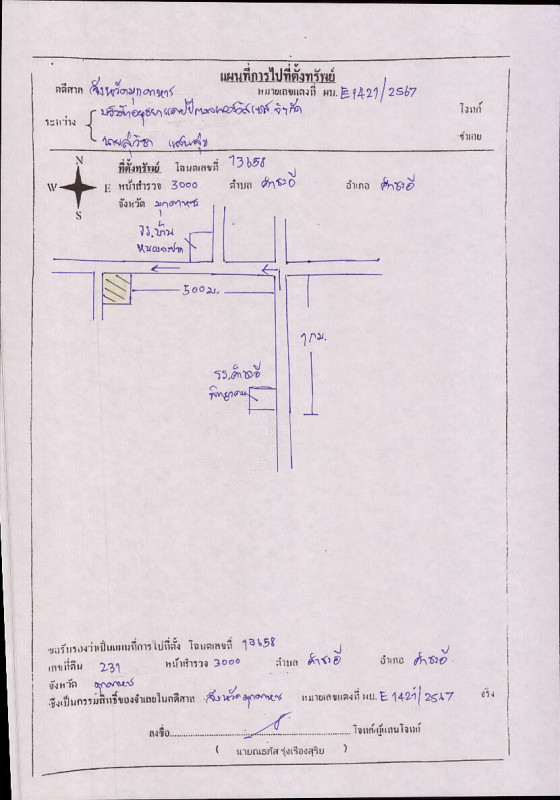 แผนที่การไปที่ตั้งทรัพย์
คดีศาล จังหวัดมุกดาหาร หมายเลขแดงที่ ผบ. E 1421/2567
ระหว่าง
บริษัทอยุธยาแคปปิตอลเซอร์วิสเซส จำกัด โจทก์
นายสุวิชา แสนสุข จำเลย
ที่ตั้งทรัพย์ โฉนดเลขที่ 13658
หน้าสำรวจ 3000 ตำบล คำชะอี อำเภอ คำชะอี
จังหวัด มุกดาหาร
N
W E
S
รร.บ้าน
500 ม.
1 กม.
รร.คำชะอี
พิทยาคม
ขอรับรองว่าเป็นแผนที่การไปที่ตั้ง โฉนดเลขที่ 13658
เลขที่ดิน 231 หน้าสำรวจ 3000 ตำบล คำชะอี อำเภอ คำชะอี
จังหวัด มุกดาหาร
ซึ่งเป็นกรรมสิทธิ์ของจำเลยในคดีศาล จังหวัดมุกดาหาร หมายเลขแดงที่ ผบ. E 1421/2567 จริง
ลงชื่อ โจทก์/ผู้แทนโจทก์
( นายณธภัส รุ่งเรืองสุริย )